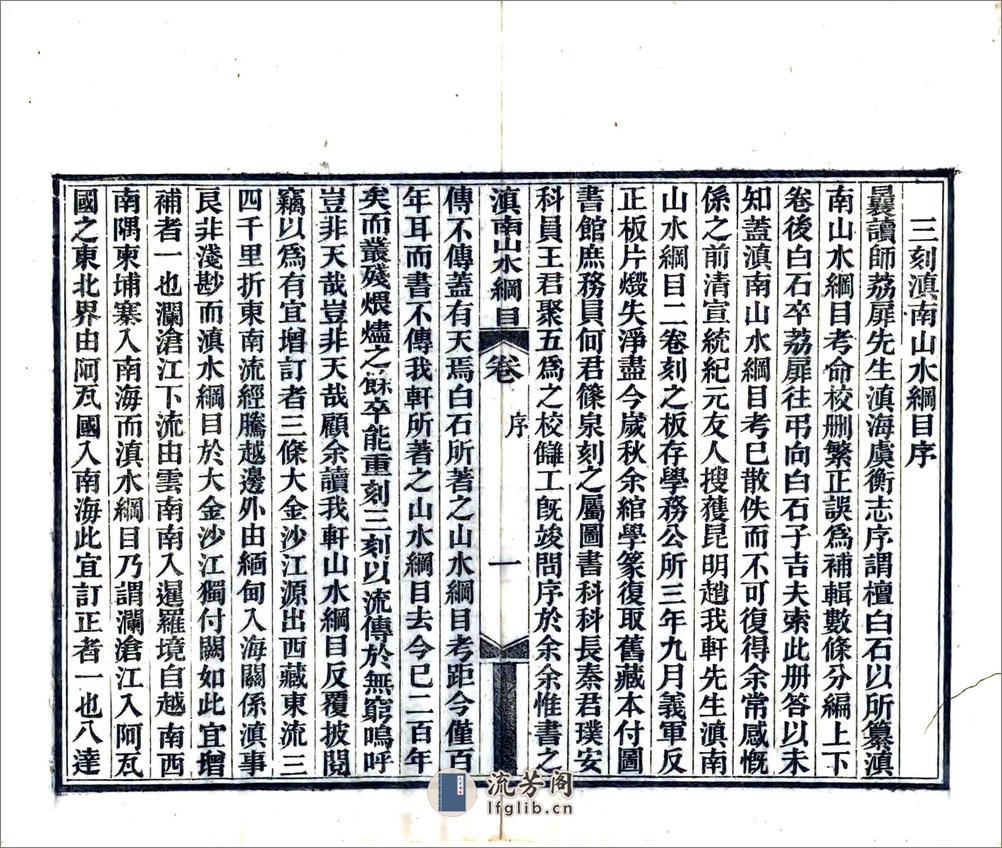 三刻滇南山水綱目序
曩讀師荔扉先生滇海虞衡志序謂檀白石以所纂滇
南山水綱目考命校删繁正誤爲補輯數條分編上下
卷後白石卒荔扉往弔向白石子吉夫索此册答以未
知蓋滇南山水綱目考已散佚而不可復得余常感慨
係之前清宣統紀元友人搜獲昆明趙我軒先生滇南
山水綱目二卷刻之板存學務公所三年九月義軍反
正板片燬失淨盡今歲秋余綰學篆復取舊藏本付圖
書館庶務員何君篠泉刻之屬圖書科科長秦君璞安
科員王君聚五爲之校讎工旣竣問序於余余惟書之
滇南山水綱目 卷 序 一
傳不傳蓋有天焉白石所著之山水綱目考距今僅百
年耳而書不傳我軒所著之山水綱目去今已二百年
矣而叢殘煨燼之餘卒能重刻三刻以流傳於無窮嗚呼
豈非天哉豈非天哉顧余讀我軒山水綱目反覆披閱
竊以爲有宜增訂者三條大金沙江源出西藏東流三
四千里折東南流經騰越邊外由緬甸入海關係滇事
良非淺尠而滇水綱目於大金沙江獨付闕如此宜增
補者一也瀾滄江下流由雲南南入暹羅境自越南西
南隅柬埔寨入南海而滇水綱目乃謂瀾滄江入阿瓦
國之東北界由阿瓦國入南海此宜訂正者一也八達
流芳阁
lfglib.cn